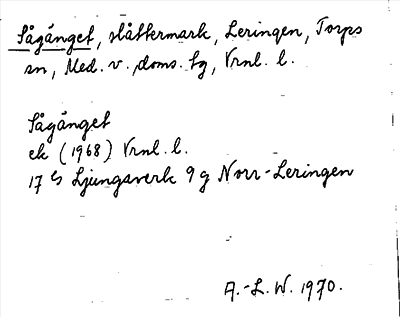 Sågånget, slåttermark, Leringen, Torps
sn, Med. v. doms. tg, Vrnl. l.
Sågånget
ek (1968) Vrnl. l.
17 G Ljungaverk 9 g Norr-Leringen
A.-L. W. 1970.